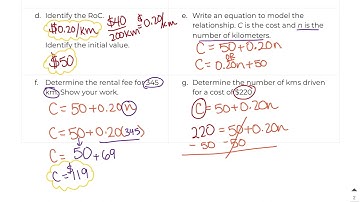 d. Identify the RoC.
$0.20/km $40/200km = $0.20/km
Identify the initial value.
$50
e. Write an equation to model the
relationship. C is the cost and n is the
number of kilometers.
C = 50 + 0.20n
OR
C = 0.20n + 50
f. Determine the rental fee for 345
km. Show your work.
C = 50 + 0.20n
C = 50 + 0.20(345)
C = 50 + 69
C = $119
g. Determine the number of kms driven
for a cost of $220.
C = 50 + 0.20n
220 = 50 + 0.20n
- 50 - 50